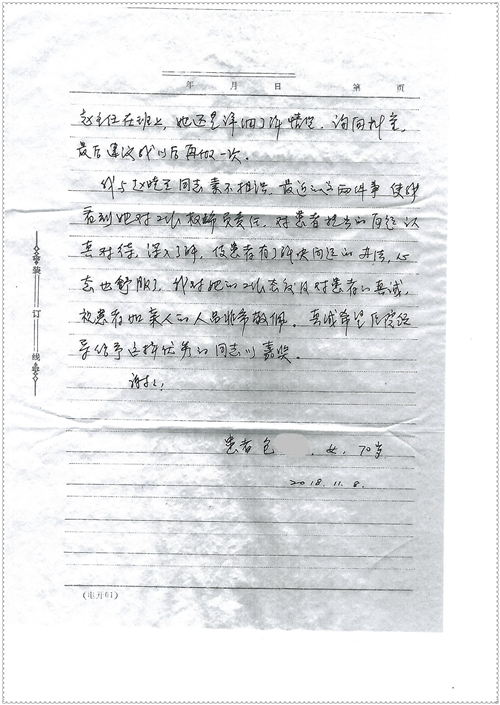 年 月 日 第 页
赵主任在班上，她还是详细了解情况，询问检查，
最后建议我以后再做一次。
我与赵晓 同志素不相识，最近的这两件事使我
看到她对工作极端负责任，对患者提出的问题认
真对待，深入了解，使患者有了解决问题的办法，心
态也舒服了，我对她的工作态度及对患者的真诚，
视患者如亲人的人品非常敬佩。真诚希望医院领
导给予这样优秀的同志以嘉奖。
谢谢！
患者 包 ，女，70岁
2018.11.8.
装订线
(电丹01)